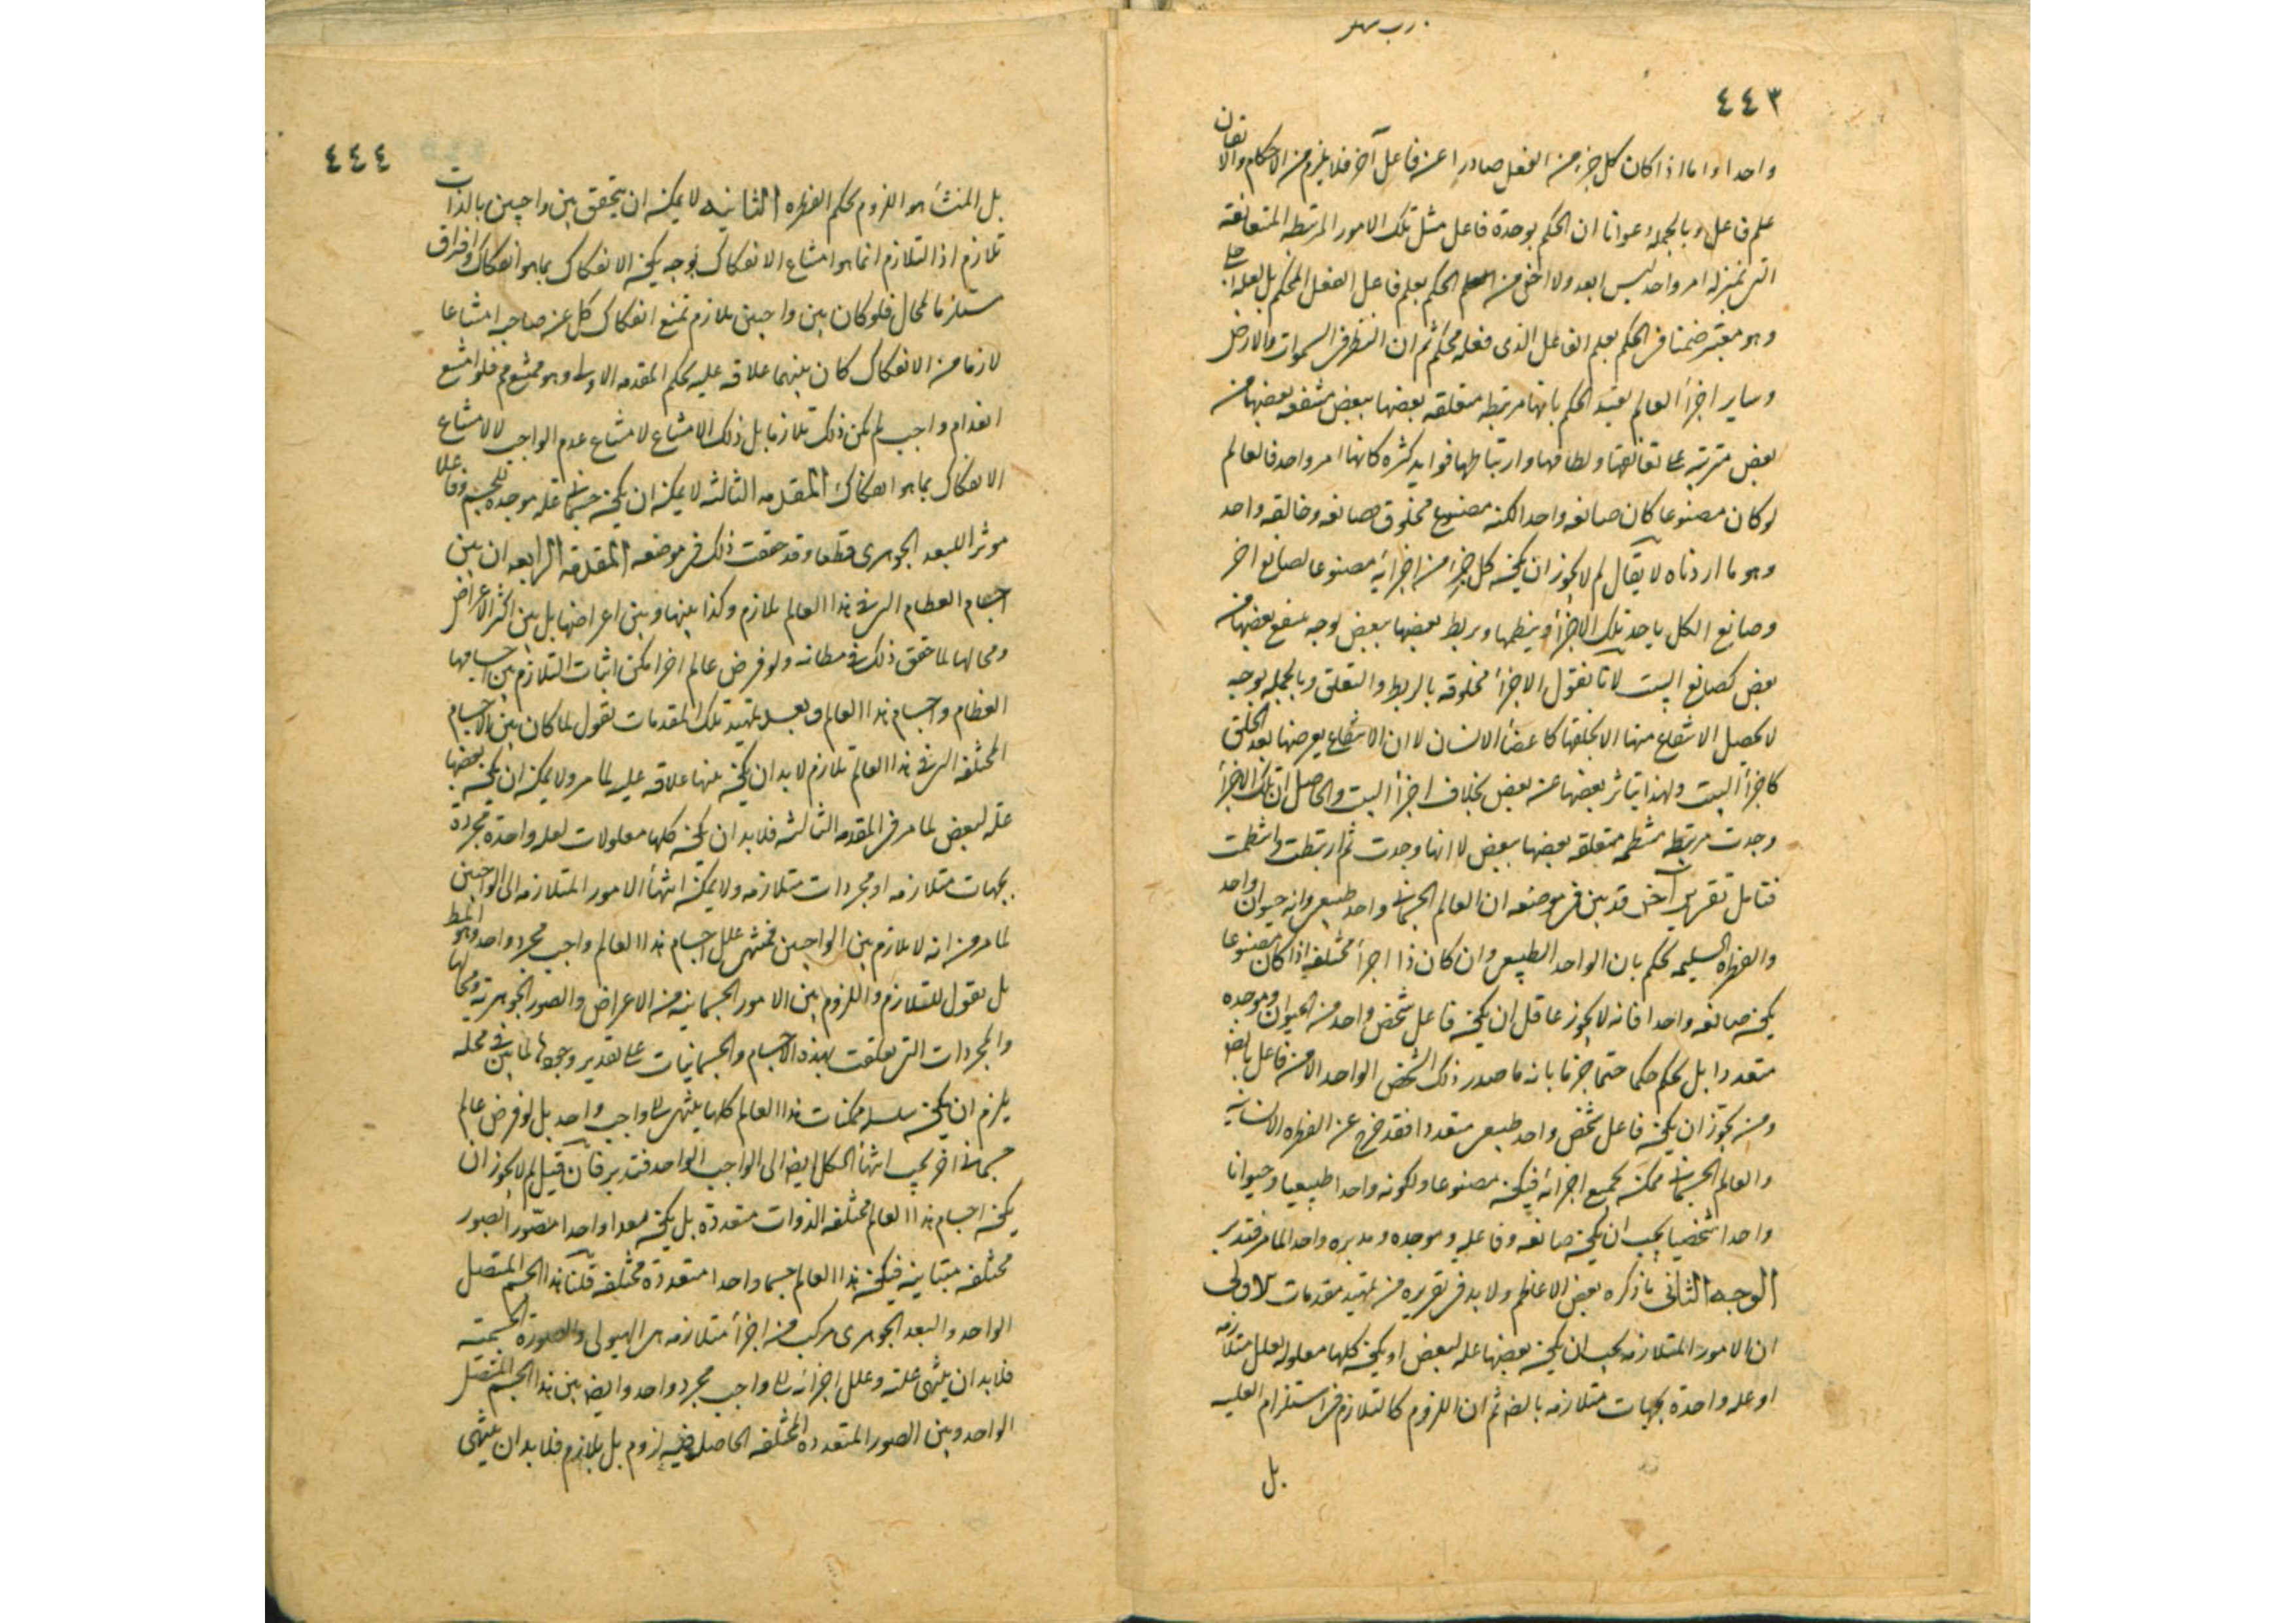 ٤٤٣
واحدا واما اذا كان كل جزء من الفعل صادرا عن فاعل آخر فلا يلزم من الاحكام والاتقان
علم فاعل وبالجمله دعوانا ان الحكم بوحدة فاعل مثل تلك الامور المرتبطه المتعانقه
التى بمنزله امر واحد ليس ابعد ولا اخفى من الحكم بعلم فاعل الفعل المحكم بل لعله اجلى
وهو معتبر ضمنا فى الحكم بعلم الفاعل الذى فعله محكم ثم ان النظر فى السموات والارض
وساير اجزأ العالم يفيد الحكم بانها مرتبطه متعلقه بعضها ببعض منتفعه بعضها من
بعض مترتبه على تعانقها ونظامها وارتباطها فوايد كثره كانها امر واحد فالعالم
لو كان مصنوعا كان صانعه واحدا لكنه مصنوع مخلوق فصانعه وخالقه واحد
وهو ما اردناه لا يقال لم لا يجوز ان يكون كل جزء من اجزائه مصنوعا لصانع اخر
وصانع الكل ياخذ تلك الاجزأ وينظمها ويربط بعضها ببعض بوجه ينتفع بعضها من
بعض كصانع البيت لانا نقول الاجزأ مخلوقه بالربط والتعلق وبالجمله بوجه
لا يحصل الانتفاع منها الا بخلقها كاعضأ الانسان لا ان الانتفاع يعرضها بعد الخلق
كاجزأ البيت ولهذا يتاثر بعضها عن بعض بخلاف اجزأ البيت والحاصل ان تلك الاجزأ
وجدت مرتبطه منتظمه متعلقه بعضها ببعض لا انها وجدت ثم ارتبطت وانتظمت
فتامل تقرير آخر قد بين فى موضعه ان العالم الجسمانى واحد طبيعى وانه حيوان واحد
والفطره السليمه تحكم بان الواحد الطبيعى وان كان ذا اجزأ مختلفه اذا كان مصنوعا
يكون صانعه واحدا فانه لا يجوز عاقل ان يكون فاعل شخص واحد من الحيوان وموجده
متعددا بل يحكم حكما حتما جزما بانه ما صدر ذلك الشخص الواحد الا من فاعل
ومن يجوز ان يكون فاعل شخص واحد طبيعى متعددا فقد خرج عن الفطره الانسانيه
والعالم الجسمانى ممكن بجميع اجزائه فيكون مصنوعا ولكونه واحدا طبيعيا وحيوانا
واحدا شخصيا يجب ان يكون صانعه وفاعله وموجده ومدبره واحدا لما مر فتدبر
الوجه الثانى ما ذكره بعض الاعاظم ولا بد فى تقريره من تمهيد مقدمات الاولى
ان الامور المتلازمه يجب ان يكون بعضها عله لبعض او يكون كلها معلوله لعلل متلازمه
او عله واحدة بجهات متلازمه بالضه ثم ان اللزوم كالتلازم فى استلزام العليه
بل
٤٤٤
بل المنشأ هو اللزوم بحكم الفطره الثانيه لا يمكن ان يتحقق بين واجبين بالذات
تلازم اذ التلازم انما هو امتناع الانفكاك بوجه يكون الانفكاك بما هو انفكاك وافتراق
مستلزما لمحال فلو كان بين واجبين تلازم يمتنع انفكاك كل عن صاحبه امتناعا
لازما من الانفكاك كان بينهما علاقه عليه بحكم المقدمه الاولى وهو ممتنع فلو امتنع
انعدام واجب لم يكن ذلك تلازما بل ذلك الامتناع لامتناع عدم الواجب لا لامتناع
الانفكاك بما هو انفكاك المقدمه الثالثه لا يمكن ان يكون جسمانى عله موجده للجسم وفاعلا
موثرا للبعد الجوهرى قطعا وقد حققت ذلك فى موضعه المقدمه الرابعه ان بين
اجسام العظام التى فى هذا العالم تلازم وكذا بينها وبين اعراضها بل بين اكثر الاعراض
ومحالها لما حقق ذلك فى مظانه ولو فرض عالم اخر امكن اثبات التلازم بين اجسامها
العظام واجسام هذا العالم وبعد تمهيد تلك المقدمات نقول لما كان بين الاجسام
المختلفه التى فى هذا العالم تلازم لا بد ان يكون بينها علاقه عليه لما مر ولا يمكن ان يكون بعضها
عله لبعض لما مر فى المقدمه الثالثه فلا بد ان يكون كلها معلولات لعله واحدة مجردة
بجهات متلازمه او مجردات متلازمه ولا يمكن انتهأ الامور المتلازمه الى الواجبين
لما مر من انه لا تلازم بين الواجبين فمنتهى علل اجسام هذا العالم واجب مجرد واحد وهو المط
بل نقول للتلازم واللزوم بين الامور الجسمانيه من الاعراض والصور الجوهريه ومحالها
والمجردات التى تعلقت بهذه الاجسام والجسمانيات على تقدير وجودها لما بين فى محله
يلزم ان يكون سلسله ممكنات هذا العالم كلها ينتهى الى واجب واحد بل لو فرض عالم
جسمانى اخر يجب انتهأ الكل ايض الى الواجب الواحد فتدبر فان قيل لم لا يجوز ان
يكون اجسام هذا العالم مختلفه الذوات متعددة بل يكون بعدا واحدا متصور الصور
مختلفه متباينه فيكون هذا العالم جسما واحدا متعددة مختلفه قلنا هذا الجسم المتصل
الواحد والبعد الجوهرى مركب من اجزأ متلازمه هى الهيولى والصورة الجسميه
فلا بد ان ينتهى علته وعلل اجزائه الى واجب مجرد واحد وايض بين هذا الجسم المتصل
الواحد وبين الصور المتعدده المختلفه الحاصله فيه لزوم بل تلازم فلا بد ان ينتهى